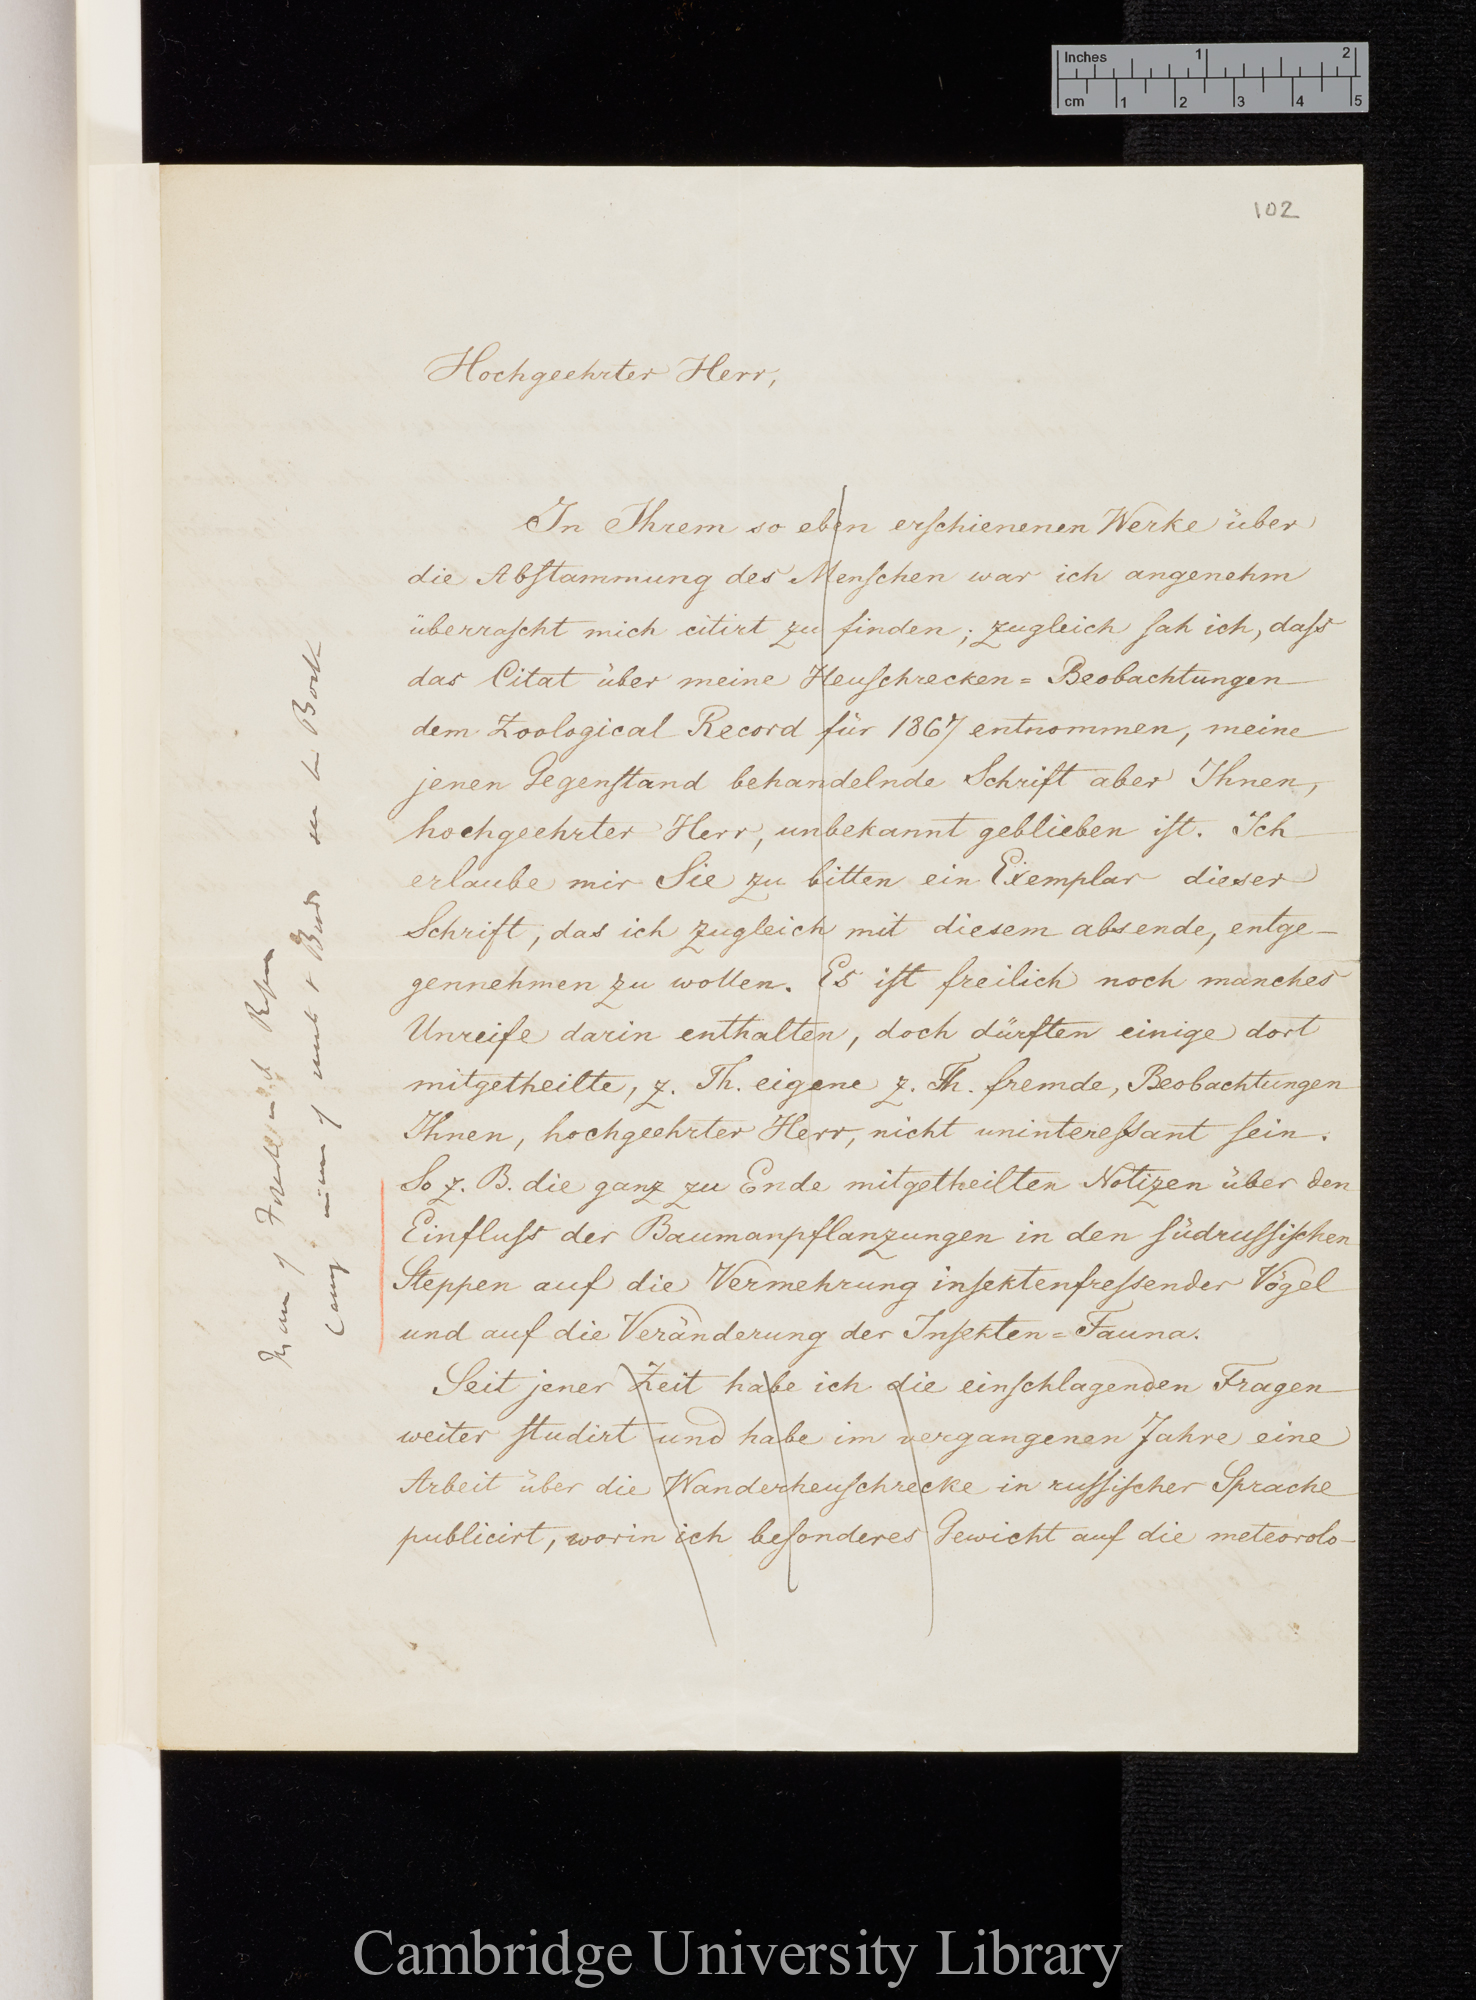 Inches 1 2
cm 1 2 3 4 5
102
Hochgeehrter Herr,
In Ihrem so eben erschienenen Werke über
die Abstammung des Menschen war ich angenehm
überrascht mich citirt zu finden; zugleich sah ich, dass
das Citat über meine Heuschrecken=Beobachtungen
dem Zoological Record für 1867 entnommen, meine
jenen Gegenstand behandelnde Schrift aber Ihnen,
hochgeehrter Herr, unbekannt geblieben ist. Ich
erlaube mir Sie zu bitten ein Exemplar dieser
Schrift, das ich zugleich mit diesem absende, entge-
gennehmen zu wollen. Es ist freilich noch manches
Unreife darin enthalten, doch dürften einige dort
mitgetheilte, z. Th. eigene z. Th. fremde, Beobachtungen
Ihnen, hochgeehrter Herr, nicht uninteressant sein.
So z. B. die ganz zu Ende mitgetheilten Notizen über den
Einfluss der Baumanpflanzungen in den südrussischen
Steppen auf die Vermehrung insektenfressender Vögel
und auf die Veränderung der Insekten=Fauna.
Seit jener Zeit habe ich die einschlagenden Fragen
weiter studirt und habe im vergangenen Jahre eine
Arbeit über die Wanderheuschrecke in russischer Sprache
publicirt, worin ich besonderes Gewicht auf die meteorolo-
of
of & Birds
Cambridge University Library